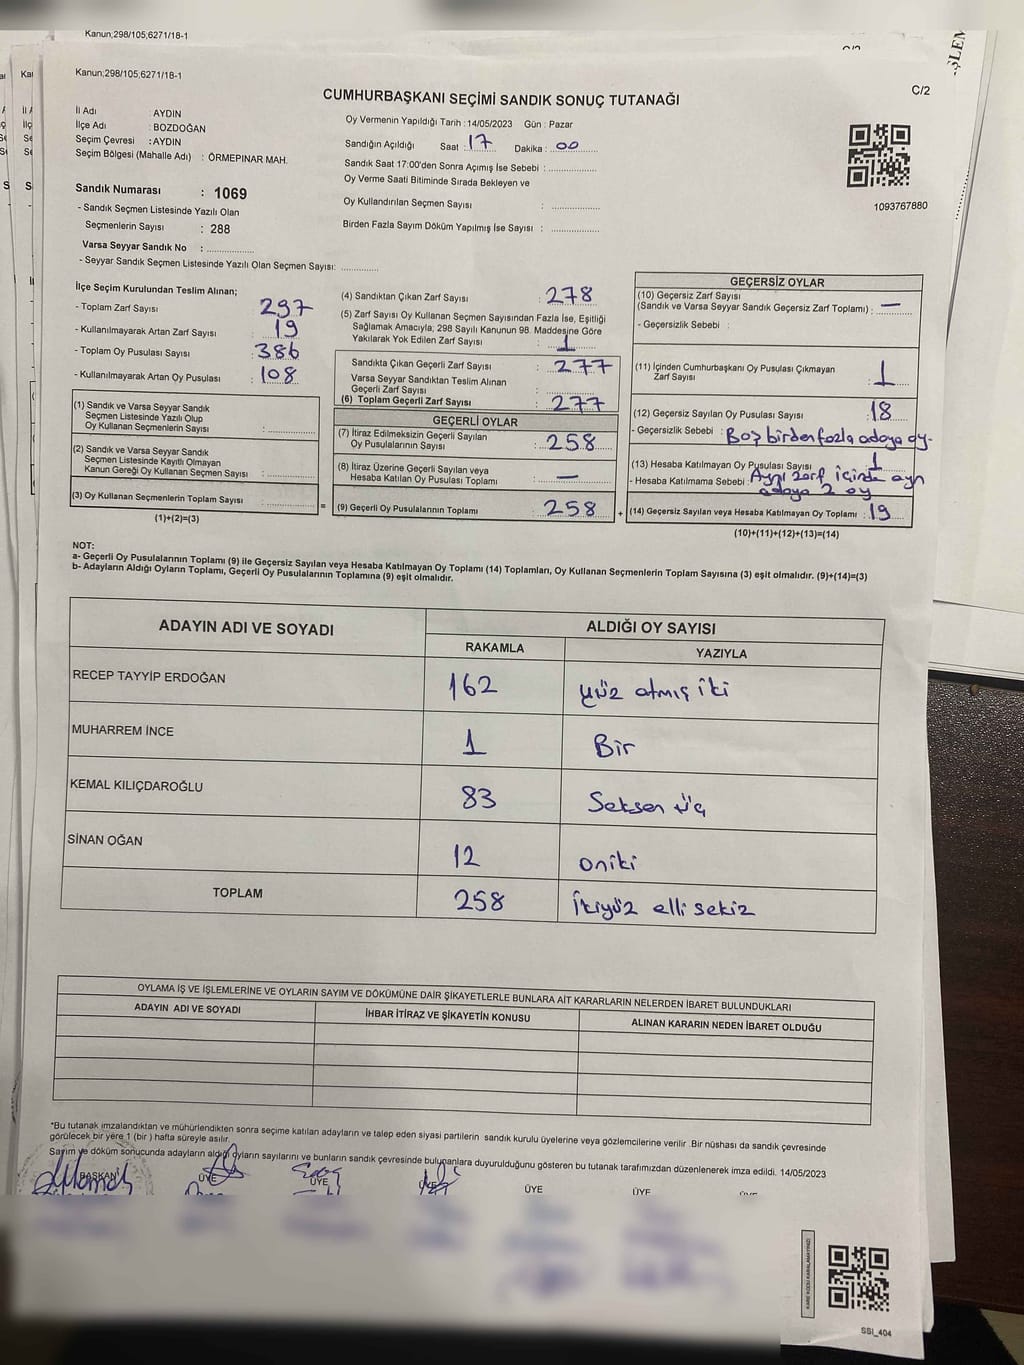 Kanun;298/105;6271/18-1
Kanun;298/105;6271/18-1
C/2
CUMHURBAŞKANI SEÇİMİ SANDIK SONUÇ TUTANAĞI
İl Adı : AYDIN
İlçe Adı : BOZDOĞAN
Seçim Çevresi : AYDIN
Seçim Bölgesi (Mahalle Adı) : ÖRMEPINAR MAH.
Sandık Numarası : 1069
- Sandık Seçmen Listesinde Yazılı Olan
Seçmenlerin Sayısı : 288
Varsa Seyyar Sandık No :
- Seyyar Sandık Seçmen Listesinde Yazılı Olan Seçmen Sayısı:
Oy Vermenin Yapıldığı Tarih : 14/05/2023 Gün : Pazar
Sandığın Açıldığı Saat : 17 Dakika : 00
Sandık Saat 17:00'den Sonra Açımış İse Sebebi :
Oy Verme Saati Bitiminde Sırada Bekleyen ve
Oy Kullandırılan Seçmen Sayısı :
Birden Fazla Sayım Döküm Yapılmış İse Sayısı :
1093767880
İlçe Seçim Kurulundan Teslim Alınan;
- Toplam Zarf Sayısı 297
- Kullanılmayarak Artan Zarf Sayısı 19
- Toplam Oy Pusulası Sayısı 386
- Kullanılmayarak Artan Oy Pusulası : 108
(1) Sandık ve Varsa Seyyar Sandık
Seçmen Listesinde Yazılı Olup
Oy Kullanan Seçmenlerin Sayısı :
(2) Sandık ve Varsa Seyyar Sandık
Seçmen Listesinde Kayıtlı Olmayan
Kanun Gereği Oy Kullanan Seçmen Sayısı :
(3) Oy Kullanan Seçmenlerin Toplam Sayısı :
(1)+(2)=(3)
(4) Sandıktan Çıkan Zarf Sayısı : 278
(5) Zarf Sayısı Oy Kullanan Seçmen Sayısından Fazla İse, Eşitliği
Sağlamak Amacıyla, 298 Sayılı Kanunun 98. Maddesine Göre
Yakılarak Yok Edilen Zarf Sayısı : 1
Sandıkta Çıkan Geçerli Zarf Sayısı : 277
Varsa Seyyar Sandıktan Teslim Alınan
Geçerli Zarf Sayısı :
(6) Toplam Geçerli Zarf Sayısı : 277
GEÇERLİ OYLAR
(7) İtiraz Edilmeksizin Geçerli Sayılan
Oy Pusulalarının Sayısı : 258
(8) İtiraz Üzerine Geçerli Sayılan veya
Hesaba Katılan Oy Pusulası Toplamı : —
= (9) Geçerli Oy Pusulalarının Toplamı : 258 +
GEÇERSİZ OYLAR
(10) Geçersiz Zarf Sayısı
(Sandık ve Varsa Seyyar Sandık Geçersiz Zarf Toplamı) : —
- Geçersizlik Sebebi :
(11) İçinden Cumhurbaşkanı Oy Pusulası Çıkmayan
Zarf Sayısı : 1
(12) Geçersiz Sayılan Oy Pusulası Sayısı : 18
- Geçersizlik Sebebi : Boş birden fazla adaya oy-
(13) Hesaba Katılmayan Oy Pusulası Sayısı : 1
- Hesaba Katılmama Sebebi : Aynı zarf içinde ayrı
adaya 2 oy
(14) Geçersiz Sayılan veya Hesaba Katılmayan Oy Toplamı : 19
(10)+(11)+(12)+(13)=(14)
NOT:
a- Geçerli Oy Pusulalarının Toplamı (9) ile Geçersiz Sayılan veya Hesaba Katılmayan Oy Toplamı (14) Toplamları, Oy Kullanan Seçmenlerin Toplam Sayısına (3) eşit olmalıdır. (9)+(14)=(3)
b- Adayların Aldığı Oyların Toplamı, Geçerli Oy Pusulalarının Toplamına (9) eşit olmalıdır.
ADAYIN ADI VE SOYADI ALDIĞI OY SAYISI
RAKAMLA YAZIYLA
RECEP TAYYİP ERDOĞAN 162 yüz atmış iki
MUHARREM İNCE 1 Bir
KEMAL KILIÇDAROĞLU 83 Seksen üç
SİNAN OĞAN 12 oniki
TOPLAM 258 İkiyüz elli sekiz
OYLAMA İŞ VE İŞLEMLERİNE VE OYLARIN SAYIM VE DÖKÜMÜNE DAİR ŞİKAYETLERLE BUNLARA AİT KARARLARIN NELERDEN İBARET BULUNDUKLARI
ADAYIN ADI VE SOYADI İHBAR İTİRAZ VE ŞİKAYETİN KONUSU ALINAN KARARIN NEDEN İBARET OLDUĞU
*Bu tutanak imzalandıktan ve mühürlendikten sonra seçime katılan adayların ve talep eden siyasi partilerin sandık kurulu üyelerine veya gözlemcilerine verilir .Bir nüshası da sandık çevresinde
görülecek bir yere 1 (bir ) hafta süreyle asılır.
Sayım ve döküm sonucunda adayların aldığı oyların sayılarını ve bunların sandık çevresinde bulunanlara duyurulduğunu gösteren bu tutanak tarafımızdan düzenlenerek imza edildi. 14/05/2023
BAŞKAN ÜYE ÜYE ÜYE ÜYE ÜYE
KARE KODU KARALAMAYINIZ!
SSI_404